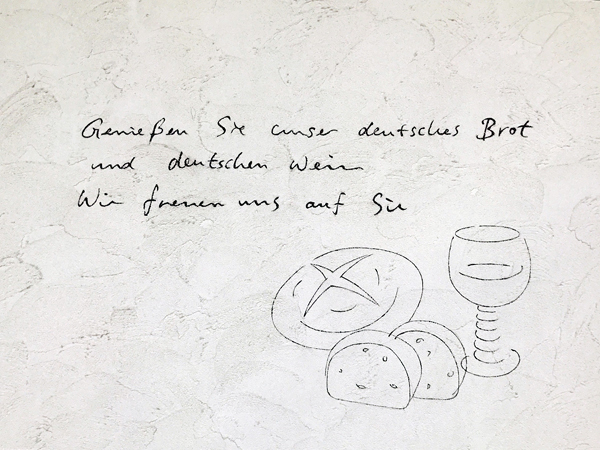 Genießen Sie unser deutsches Brot
und deutschen Wein
Wir freuen uns auf Sie